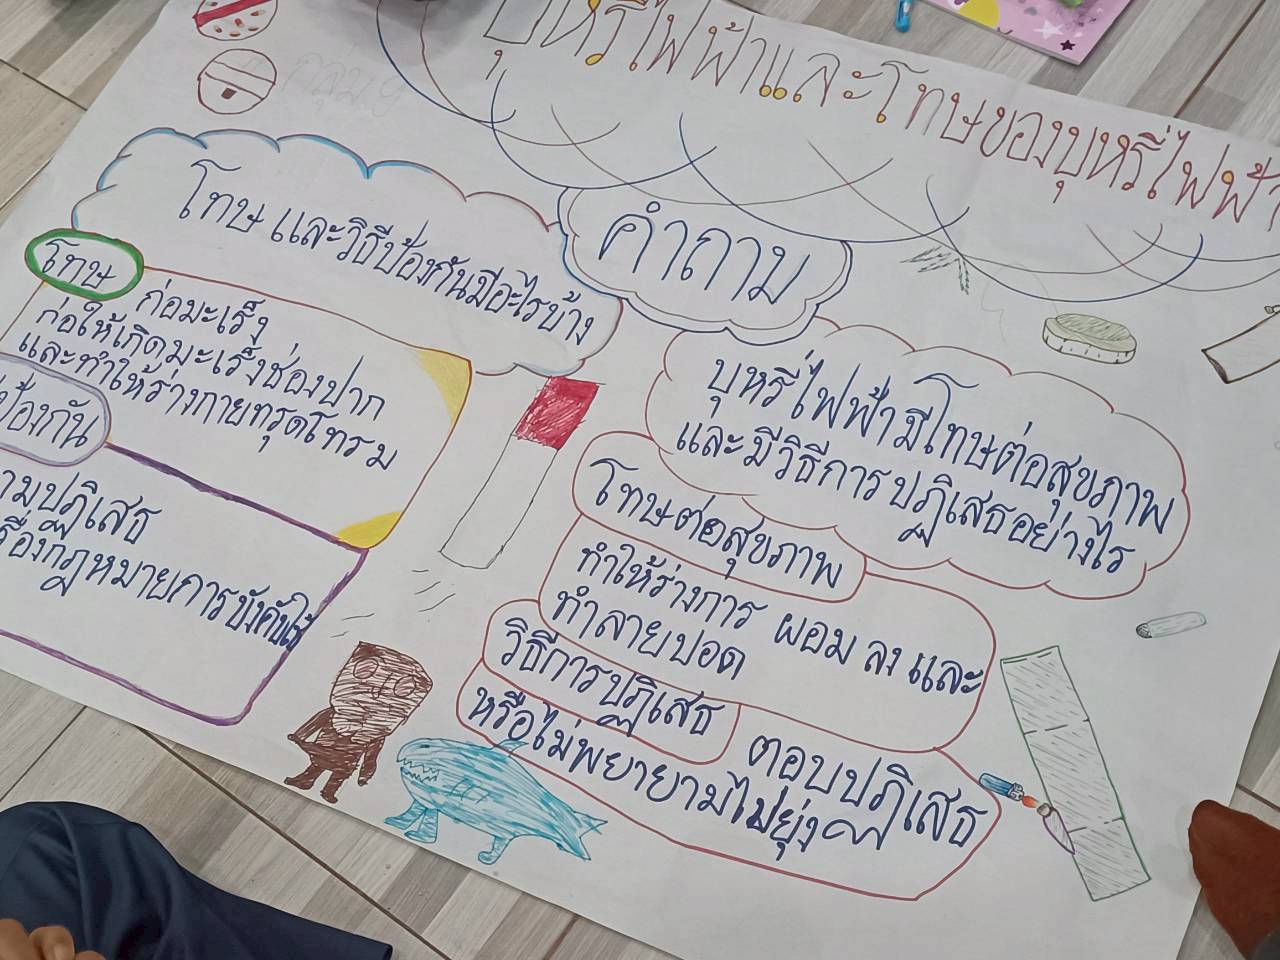 บุหรี่ไฟฟ้าและโทษของบุหรี่ไฟฟ้า
คำถาม
โทษ และวิธีป้องกันมีอะไรบ้าง
โทษ
ก่อมะเร็ง
ก่อให้เกิดมะเร็งช่องปาก
และทำให้ร่างกายทรุดโทรม
ป้องกัน
ปฏิเสธ
กฎหมายการบังคับใช้
บุหรี่ไฟฟ้ามีโทษต่อสุขภาพ
และมีวิธีการปฏิเสธอย่างไร
โทษต่อสุขภาพ
ทำให้ร่างการ ผอม ลง และ
ทำลายปอด
วิธีการปฏิเสธ
ตอบปฏิเสธ
หรือไม่พยายามไปยุ่ง